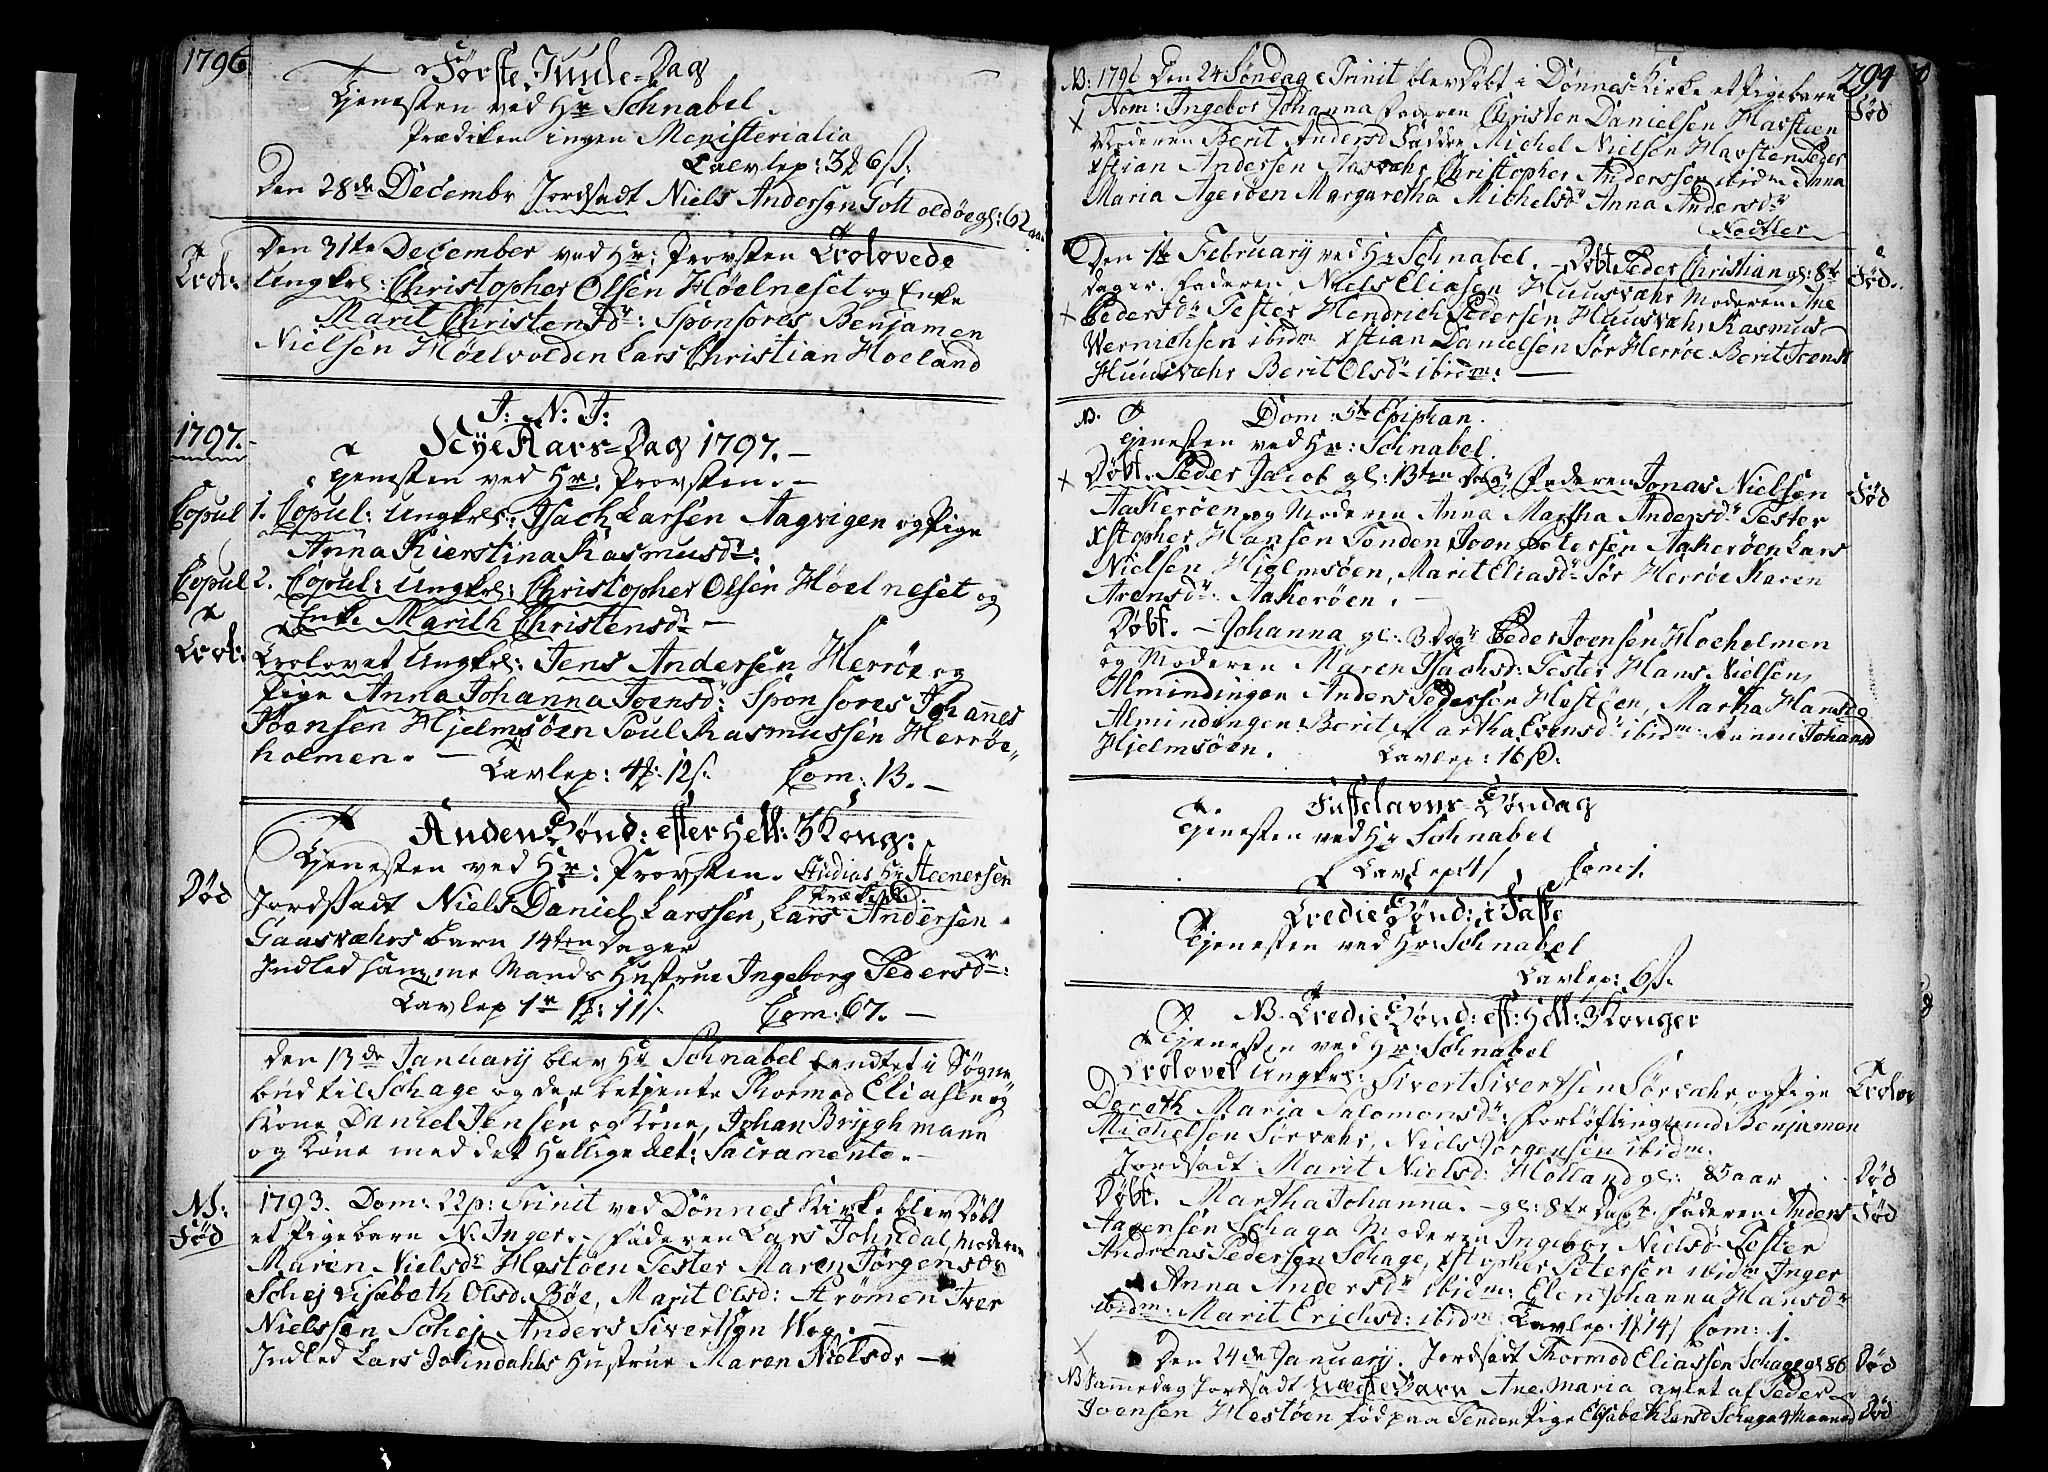 1796
Første Juule-Dag
Tjenesten ved Hr Schnabel.
Prædiken ingen Menisterialia
Tavlep: 3 6 ß:
Den 28de Decembr Jordsadt Niels Andersen gl: 62 aar
Trol:
Den 31te December ved Hr: Provsten Trolovede
Ungkrl: Christopher Olsen Høelneset og Enke
Marit Christensdr: Sponsores Benjamen
Nielsen Høelvolden Lars Christian Hoeland
J: N: J:
1797.
Nye Aars-Dag 1797.
Tjenesten ved Hr: Provsten.
Copul 1. Copul: Ungkrl: Isach Larsen Aagvigen og Pige
Anna Kierstina Rasmusdr:
Copul 2. Copul: Ungkrl: Christopher Olsen Høelneset og
Enke Marith Christensdr
Trol:
Trolovet Ungkrl: Jens Andersen Herrøe og
Pige Anna Johanna Joensdr: Sponsores Johannes
Hansen Hjelmsøen Poul Rasmussen Herrøe-
holmen.
Tavlep: 4 12 ß. Com: 13.
Anden Sønd: efter Hell: 3 Kong:
Tjenesten ved Hr: Provsten. Studios Hr Steenersen
Prækede.
Død
Jordsadt Niels Daniel Larssen, Lars Andersen
Gaasvæhrs barn 14ten Dager
Indled samme Mands Hustrue Ingeborg Pedersdr:
Tavlep 1 11 ß. Com: 67.
Den 13de January blev Hr Schnabel hendtet i Søgne
bud til Schage og der betjente Thormod Eliasen og
Kone Daniel Jensen og Kone, Johan Brijghmann
og Kone med det Hellige Sacramente.
N:
Fød
1793. Dom: 22 p: Trinit ved Dønnes Kirke blev Døbt
et Pigebarn N: Inger. Faderen Lars Johndal, Moderen
Maren Nielsdr Hestøen Tester Maren Jørgensdr
Schej Lisabeth Olsd. Bøe, Marit Olsd: Strømen Iver
Nielssen Schej Anders Sivertsen Wog.
Indled Lars Johndahls Hustrue Maren Nielsdr
294
N: 1796 Den 24 Søndag e Trinit blev Døbt i Dønnes Kirke et Pigebarn
Fød
Nom: Ingebor Johanna Faderen Christen Danielsen Havsteen
Moderen Berit Andersd Faddre Michel Nielsen Havsten Peder
Xstian Andersen Aasvæhr Christopher Anderssen ibidm Anna
Maria Agerøen Margaretha Michelsdr Anna Andersdr
Den 1te February ved Hr Schnabel. Døbt Peder Christian gl: 8te
Fød.
dager. Faderen Niels Eliasen Huusvæhr Moderen Ane
Pedersdr Tester Hendrich Pedersen Huusvæhr Rasmus
Wernichsen ibidm Xstian Danielsen Sør Herrøe Berit Joensd
Huusvæhr Berit Olsdr ibidm:
N. Dom: 5te Epiphan.
Tjenesten ved Hr: Schnabel.
Døbt. Peder Jacob gl: 13ten Dagr Faderen Jonas Nielsen
Fød
Aakerøen og Moderen Anna Martha Andersdr Tester
Xstopher Hansen Tonden Joen Petersen Aakerøen Lars
Nielsen Hjelmsøen, Marit Eliasdr Sør Herrøe Karen
Arensdr Aakerøen.
Døbt. Johanna gl: 3 Dagr Peder Joensen Hoeholmen
og Moderen Maren Isachsd: Tester Hans Nielsen,
Almindingen Anders Pedersen Hestøen, Martha Hansdr
Almindingen Berit Martha Evensdr ibidm Johansd
Hjelmsøen. Tavlep: 16 ß:
Fastelavns-Søndag
Tjenesten ved Hr Schnabel
Tavlep 4 ß Com 1.
Tredie Sønd: i Faste
Tjenesten ved Hr: Schnabel
Tavlep: 6 ß.
N. Tredie Sønd: eft: Hell: 3 Konger
Tjenesten ved Hr: Schnabel
Trolovet Ungkrl: Sivert Sivertsen Sørvæhr, og Pige
Trolov
Doroth Maria Salomonsdr: Forløftingsmd Benjamen
Michelsen Sørvæhr, Niels Jørgensen ibidm.
Jordsadt Marit Nielsd: Holland gl: 85 aar
Død
Døbt. Martha Johanna. gl: 8te Dagr. Faderen Anders
Fød
Aagensen Schaga Moderen Ingebor Nielsdr Tester
Andreas Pedersen Schage, Xstopher Petersen ibidm Inger
Anna Andersdr ibidm: Elen Johanna Hansdr
ibidm: Marit Erichsd: ibidm Tavlep: 1 14 ß Com: 1.
Den 24de January. Jordsadt Thormod Eliassen Schage gl 86
Død
N Samme dag Jordsadt Uægte Barn Ane Maria avlet af Peder
Joensen Hestøen fød paa Tenden Pige Elisabeth Larsd Schaga 4 Maaned
Død